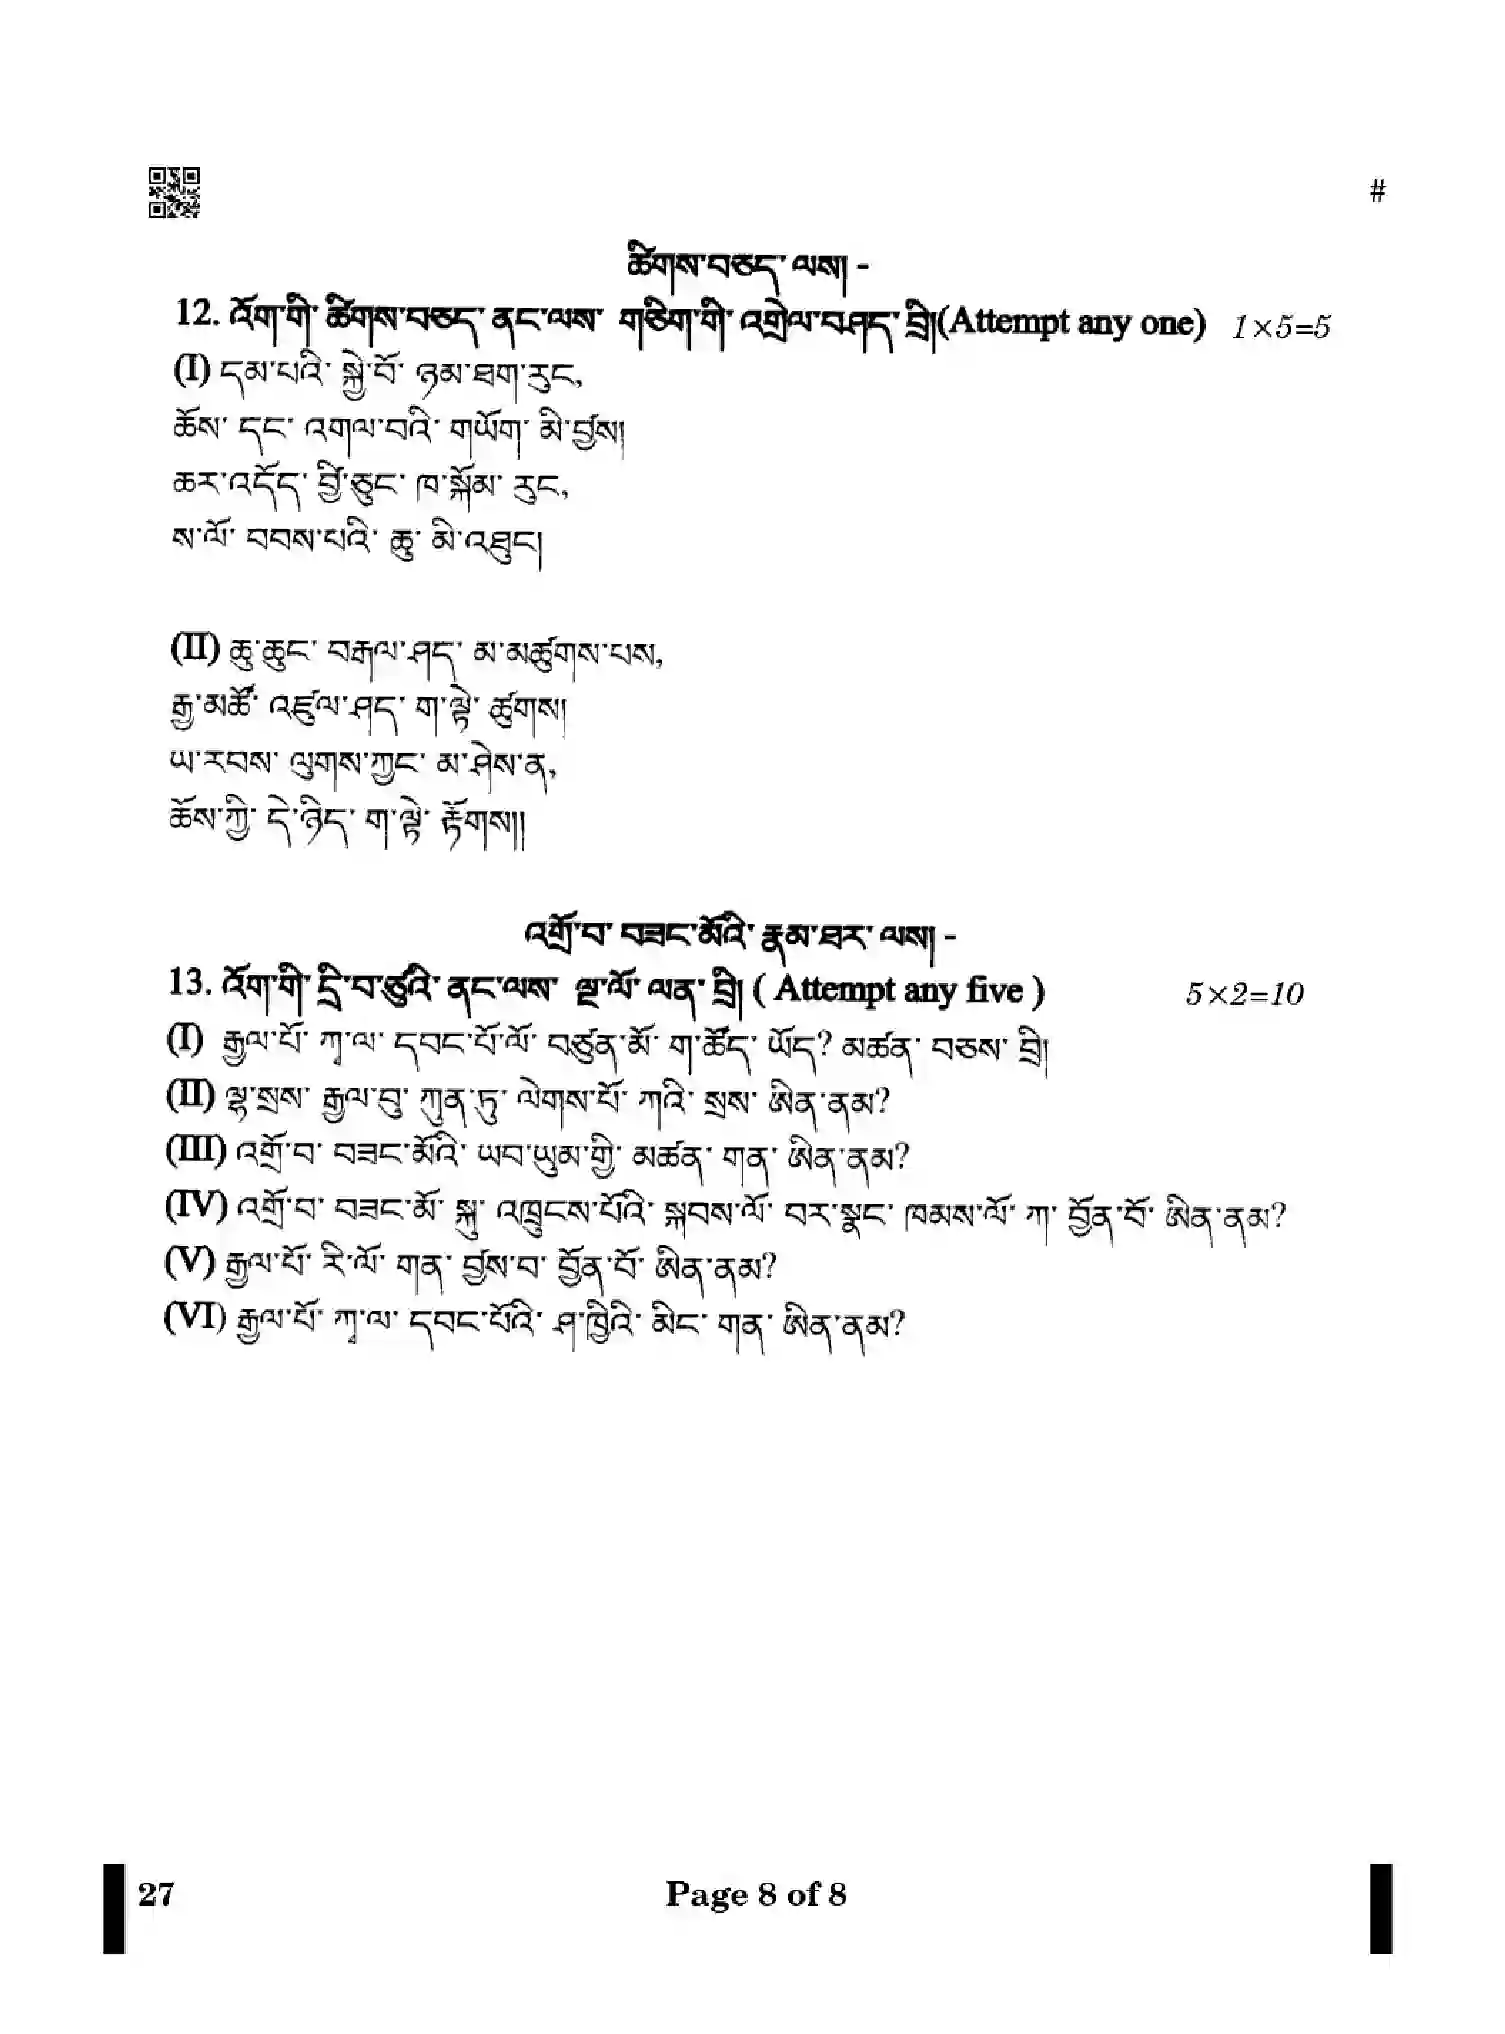 #
ཚིགས་བཅད་ ལས། -
12. འོག་གི་ ཚིགས་བཅད་ ནང་ལས་ གཅིག་གི་ འགྲེལ་བཤད་ བྲི།(Attempt any one) 1×5=5
(I) དམ་པའི་ སྐྱེ་བོ་ ཉམ་ཐག་རུང,
ཆོས་ དང་ འགལ་བའི་ གཡོག་ མི་བྱས།
ཆར་འདོད་ བྱི་ཅུང་ ཁ་སྐོམ་ རུང,
ས་ལོ་ བབས་པའི་ ཆུ་ མི་འཐུང།
(II) ཆུ་ཆུང་ བརྒལ་ཤད་ མ་མཚུགས་པས,
རྒྱ་མཚོ་ འཛུལ་ཤད་ ག་ལྟེ་ ཚུགས།
ཡ་རབས་ ལུགས་ཀྱང་ མ་ཤེས་ན,
ཆོས་ཀྱི་ དེ་ཉིད་ ག་ལྟེ་ རྟོགས།།
འགྲོ་བ་ བཟང་མོའི་ རྣམ་ཐར་ ལས། -
13. འོག་གི་ དྲི་བ་ཙུའི་ ནང་ལས་ ལྔ་ལོ་ ལན་ བྲི། ( Attempt any five ) 5×2=10
(I) རྒྱལ་པོ་ ཀཱ་ལ་ དབང་པོ་ལོ་ བཙུན་མོ་ ག་ཚོད་ ཡོད? མཚན་ བཅས་ བྲི།
(II) ལྷ་སྲས་ རྒྱལ་བུ་ ཀུན་ཏུ་ ལེགས་པོ་ ཀའི་ སྲས་ ཨིན་ནམ?
(III) འགྲོ་བ་ བཟང་མོའི་ ཡབ་ཡུམ་གྱི་ མཚན་ གན་ ཨིན་ནམ?
(IV) འགྲོ་བ་ བཟང་མོ་ སྐུ་ འཁྲུངས་པོའི་ སྐབས་ལོ་ བར་སྣང་ ཁམས་ལོ་ ཀ་ བྱོན་བོ་ ཨིན་ནམ?
(V) རྒྱལ་པོ་ རི་ལོ་ གན་ བྱས་བ་ བྱོན་བོ་ ཨིན་ནམ?
(VI) རྒྱལ་པོ་ ཀཱ་ལ་ དབང་པོའི་ ཤ་ཁྱིའི་ མིང་ གན་ ཨིན་ནམ?
27 Page 8 of 8